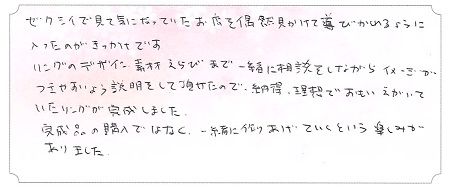 ゼクシィで見て気になっていたお店を偶然見かけて導びかれるように
入ったのがきっかけです
リングのデザイン、素材えらびまで一緒に相談をしながらイメージが
つきやすいよう説明をして頂けたので、納得、理想でおもいえがいて
いたリングが完成しました。
完成品の購入ではなく、一緒に作りあげていくという楽しみが
ありました。